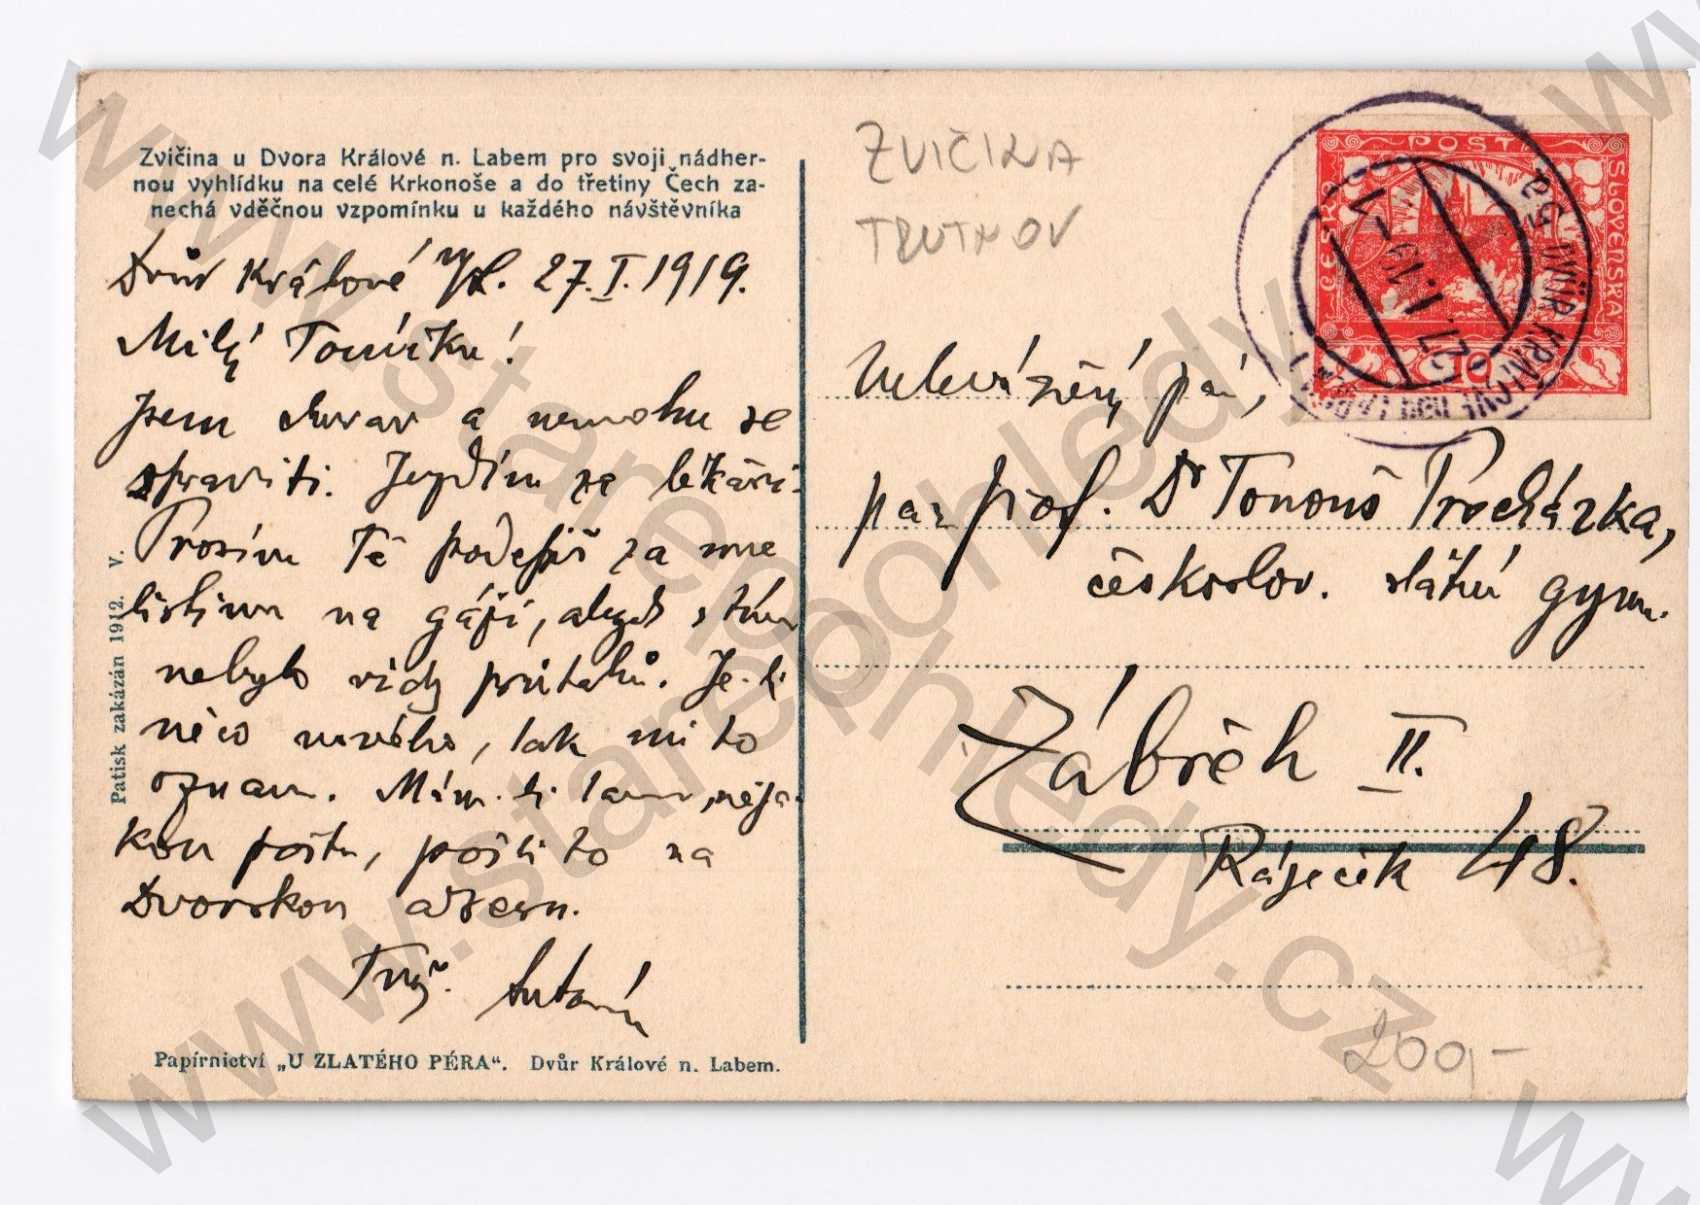 Zvičina u Dvora Králové n. Labem pro svoji nádher-
nou vyhlídku na celé Krkonoše a do třetiny Čech za-
nechá vděčnou vzpomínku u každého návštěvníka
Dvůr Králové n/L. 27.I.1919.
Milý Toníčku!
Jsem churav a nemohu se
spraviti. Jezdím za lékaři.
Prosím Tě podepiš za mne
listinu na gáži, abych s tím
nebylo vždy průtahů. Je-li
něco nového, tak mi to
oznam. Mám-li tam něja-
kou poštu, pošli to na
Dvorskou adresu.
Tvůj Antonín
Papírnictví „U ZLATÉHO PÉRA“. Dvůr Králové n. Labem.
Patisk zakázán 1912. V.
ZVIČINA
TRUTNOV
POŠTA
ČESKO
SLOVENSKÁ
10
DVŮR KRÁLOVÉ nad LABEM 1
27.I.19
Velevážený pán,
pan prof. Dr Tonouš Procházka,
českoslov. státní gymn.
Zábřeh II.
Ráječek 48.
200,-
www.starepohledy.cz
www.starepohledy.cz